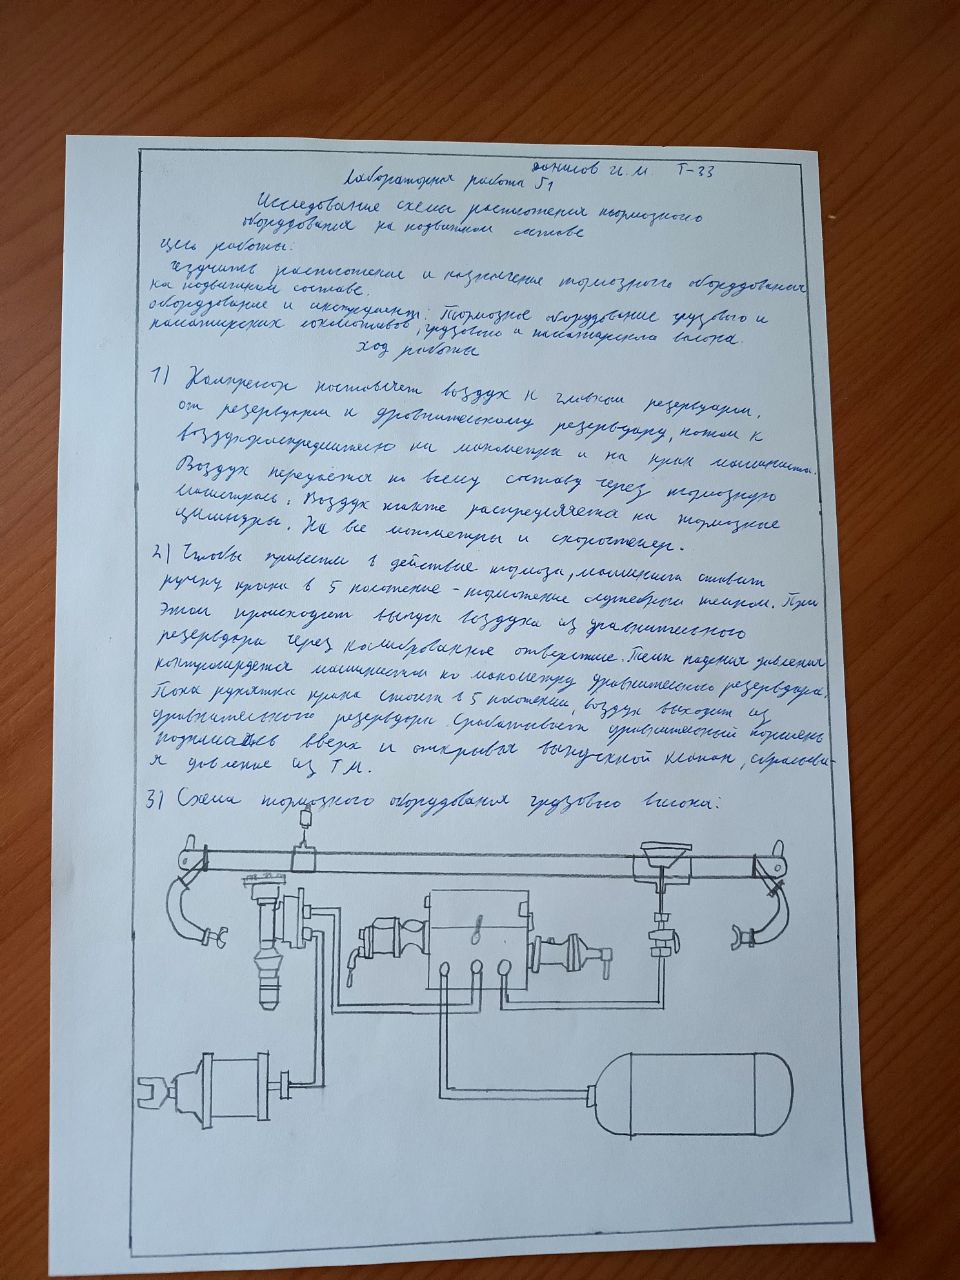 Данилов И.М Т-33
Лабораторная работа №1
Исследование схемы расположения тормозного
оборудования на подвижном составе
Цель работы:
Изучить расположение и назначение тормозного оборудования
на подвижном составе.
оборудование и инструменты: Тормозное оборудование грузового и
пассажирских локомотивов, грузового и пассажирского вагона.
ход работы
1) Компресор поставляет воздух к главным резервуарам,
от резервуара к уравнительному резервуару, потом к
воздухораспределителю на манометры и на кран машиниста.
Воздух передаётся по всему составу через тормозную
магистраль. Воздух также распределяется на тормозные
цилиндры. На все манометры и скоростемер.
2) Чтобы привести в действие тормоза, машинист ставит
ручку крана в 5 положение - торможение служебным темпом. При
этом происходит выпуск воздуха из уравнительного
резервуара через калиброванное отверстие. Темп падения давления
контролируется машинистом по манометру уравнительного резервуара.
Пока рукоятка крана стоит в 5 положении, воздух выходит из
уравнительного резервуара срабатывает уравнительный поршень
поднимаясь вверх и открывая выпускной клапан, сбрасывы-
я давление из ТМ.
3) Схема тормозного оборудования грузового вагона: